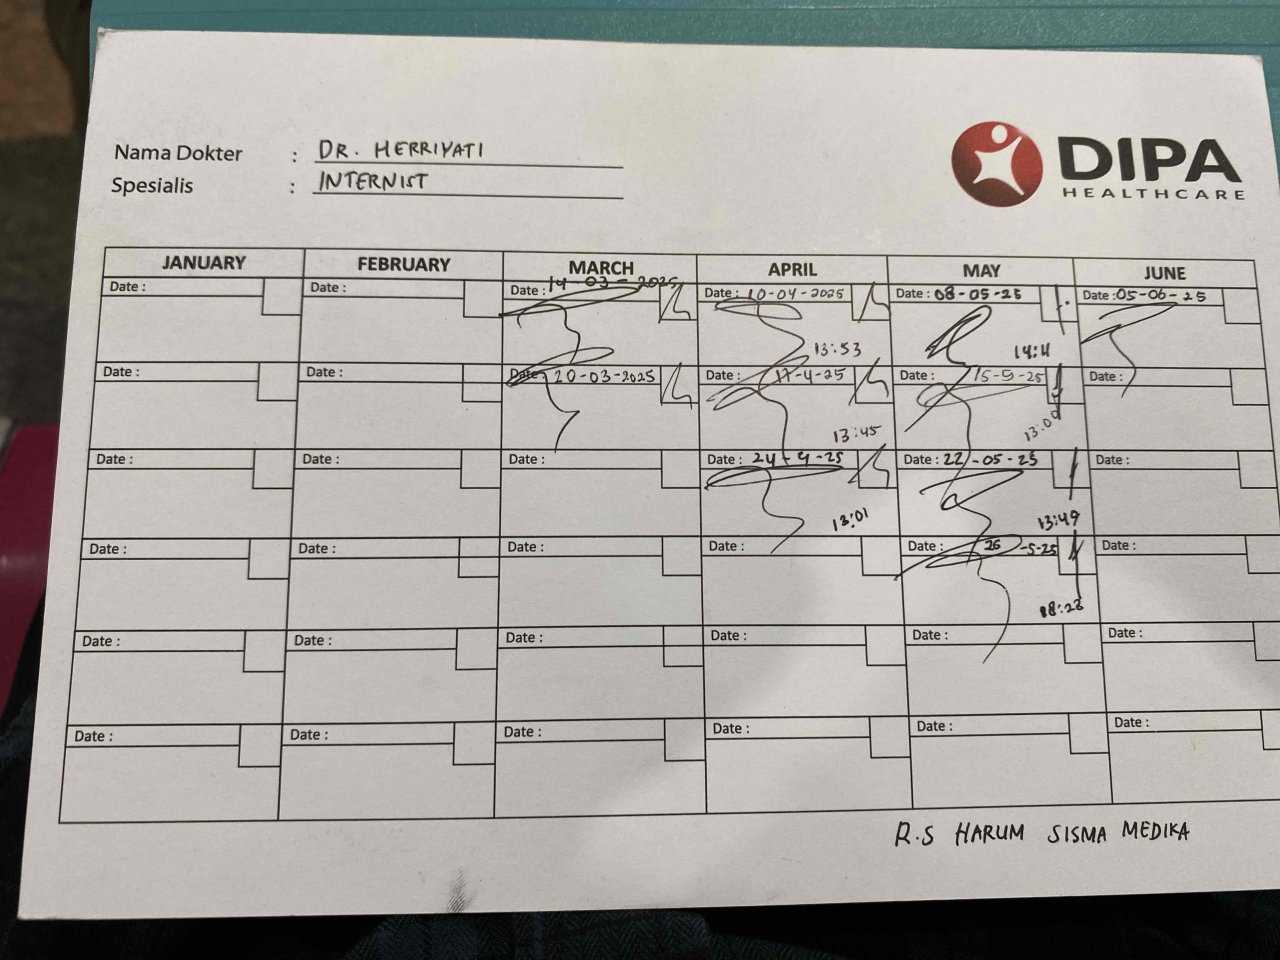 Nama Dokter : DR. HERRIYATI
Spesialis : INTERNIST
DIPA
HEALTHCARE
JANUARY FEBRUARY MARCH APRIL MAY JUNE
Date : Date : Date : 14-03-2025 Date : 10-04-2025 Date : 08-05-25 Date : 05-06-25
13:53 14:11
Date : Date : Date : 20-03-2025 Date : 17-4-25 Date : 15-5-25 Date :
13:45 13:00
Date : Date : Date : Date : 24-4-25 Date : 22-05-25 Date :
13:01 13:49
Date : Date : Date : Date : Date : 26-5-25 Date :
18:28
Date : Date : Date : Date : Date : Date :
Date : Date : Date : Date : Date : Date :
R.S HARUM SISMA MEDIKA